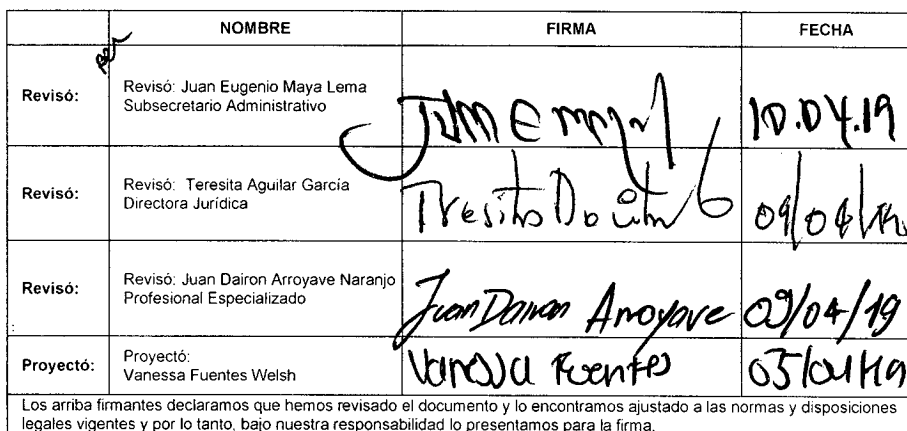 NOMBRE FIRMA FECHA
Revisó: Revisó: Juan Eugenio Maya Lema
Subsecretario Administrativo
10.04.19
Revisó: Revisó: Teresita Aguilar García
Directora Jurídica
Revisó: Revisó: Juan Dairon Arroyave Naranjo
Profesional Especializado
Juan Dairon Arroyave 09/04/19
Proyectó: Proyectó:
Vanessa Fuentes Welsh
Vanessa Fuentes
Los arriba firmantes declaramos que hemos revisado el documento y lo encontramos ajustado a las normas y disposiciones
legales vigentes y por lo tanto, bajo nuestra responsabilidad lo presentamos para la firma.